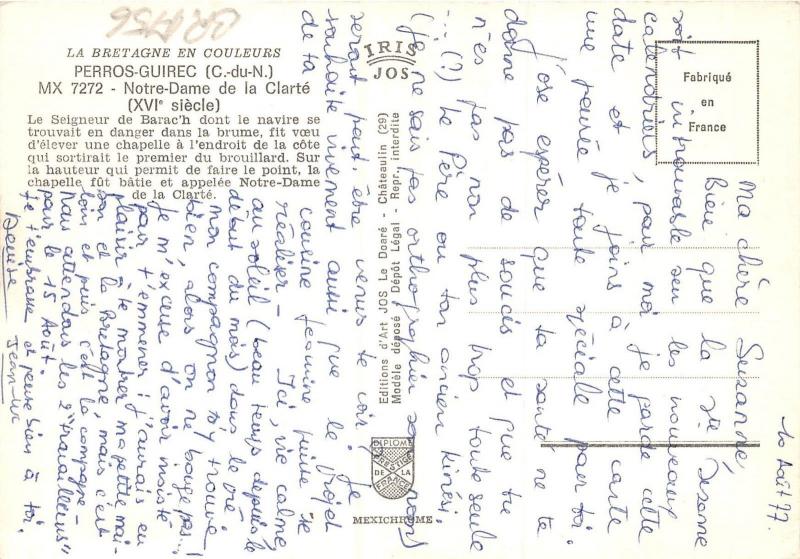 BR1756
LA BRETAGNE EN COULEURS
PERROS-GUIREC (C.-du-N.)
MX 7272 - Notre-Dame de la Clarté
(XVIe siècle)
Le Seigneur de Barac'h dont le navire se
trouvait en danger dans la brume, fit vœu
d'élever une chapelle à l'endroit de la côte
qui sortirait le premier du brouillard. Sur
la hauteur qui permit de faire le point, la
chapelle fût bâtie et appelée Notre-Dame
de la Clarté.
IRIS
JOS
Editions d'Art JOS Le Doaré - Châteaulin (29)
Modèle déposé - Dépôt Légal - Repr. interdite
DIPLOME
PRESTIGE
DE LA
FRANCE
MEXICHROME
Fabriqué
en
France
10 Août 77.
Ma chère Suzanne,
Bien que la Ste Suzanne
soit introuvable sur les nouveaux
calendriers, pour moi je garde cette
date et je joins à cette carte
une pensée toute spéciale pour toi.
J'ose espérer que ta santé ne te
donne pas de soucis et que tu
n'es pas non plus trop toute seule
...(?) Le Père ou ton ancien
(je ne sais pas orthographier son nom)
serait peut-être venu te voir ? Je
souhaite vivement aussi que le projet
de ta cousine Jeannine puisse se
réaliser - Ici, vie calme
au soleil (beau temps depuis le
début du mois) dans le
mon compagnon s'y trouve
bien, alors on ne bouge pas...
Je m'excuse d'avoir insisté
pour t'emmener : j'aurais eu
plaisir à te montrer ma petite mai-
son et la Bretagne, mais c'est
loin et puis c'est la campagne -
Nous attendons les 2 "travailleurs"
pour le 15 Août.
Je t'embrasse et pense bien à toi.
Denise Jean-Luc